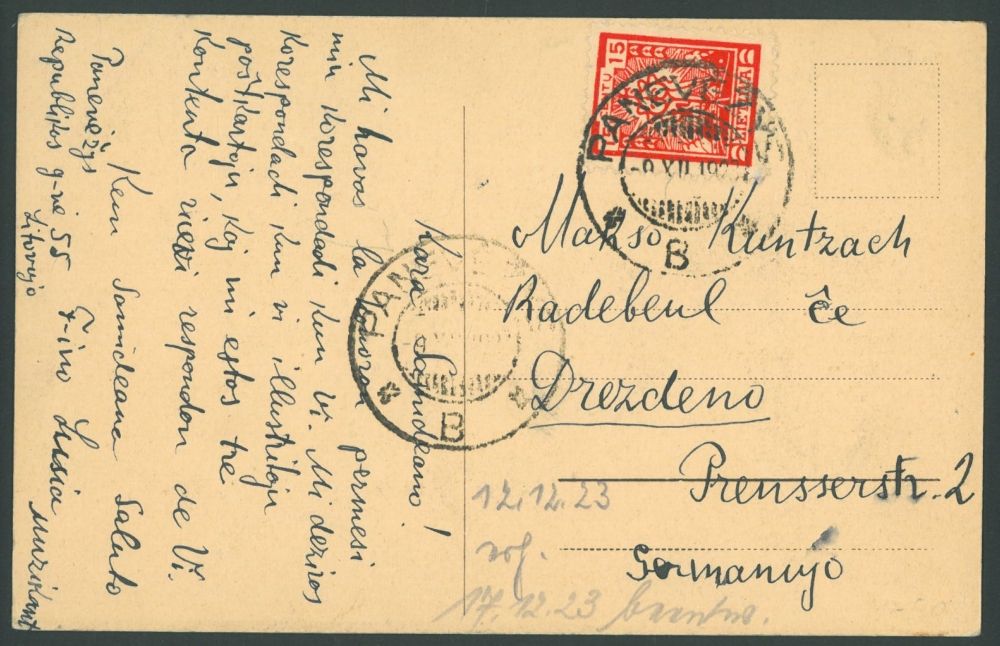 Kara Samideano!
Mi havas la honoron permesi
min korespondadi kun Vi. Mi deziras
korespondadi kun vi ilustritajn
poŝtkartojn, kaj mi estos tre
kontenta ricevi respondon de Vi.
Kun Samideana Saluto
F-ino Lusia
Panevėžys
Respublikos g-vė 55
Litovujo
15
LIETUVA
PANEVĖŽYS
B
PANEVĖŽYS
B
Makso Kuntzsch
Radebeul ĉe
Drezdeno
Preusserstr. 2
Germanujo
12.12.23
17.12.23 beantw.